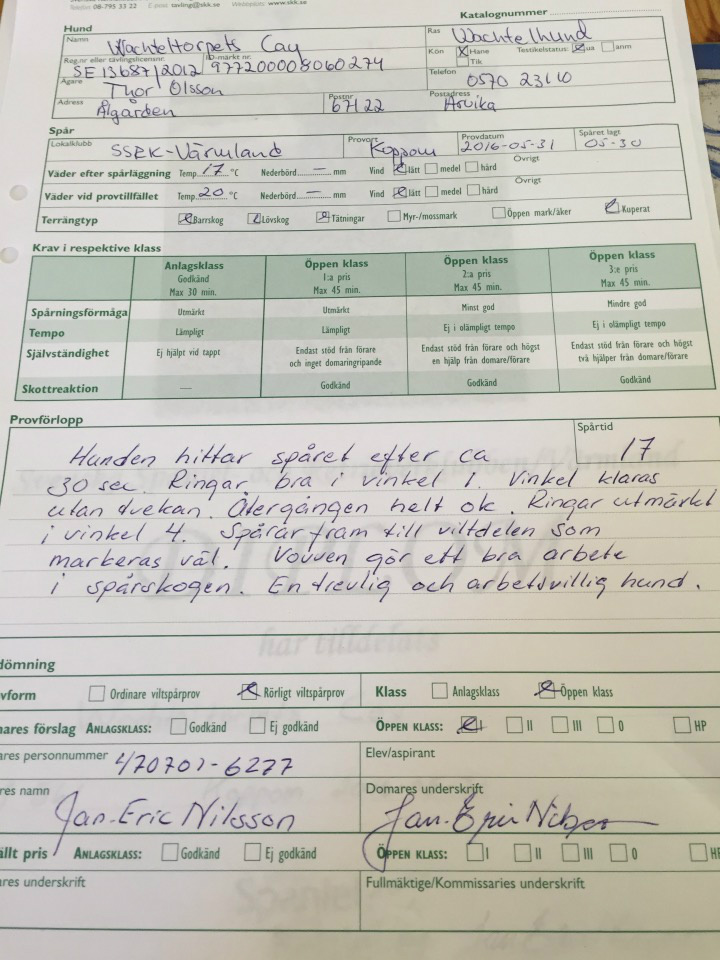 Telefon 08-795 33 22 E-post tavling@skk.se Webbplats www.skk.se
Katalognummer
Hund
Namn Wachteltorpets Cay
Ras Wachtelhund
Reg.nr eller tävlingslicensnr. SE13687/2012
ID-märkt nr. 977200008060274
Kön Hane Tik Testikelstatus: ua anm
Ägare Thor Olsson
Telefon 0570 23110
Adress Älgården
Postnr 67122
Postadress Arvika
Spår
Lokalklubb SSRK-Värmland
Provort Koppom
Provdatum 2016-05-31
Spåret lagt 05-30
Väder efter spårläggning Temp 17 °C Nederbörd — mm Vind lätt medel hård Övrigt
Väder vid provtillfället Temp 20 °C Nederbörd — mm Vind lätt medel hård Övrigt
Terrängtyp Barrskog Lövskog Tätningar Myr-/mossmark Öppen mark/åker Kuperat
Krav i respektive klass
Anlagsklass Godkänd Max 30 min.
Öppen klass 1:a pris Max 45 min.
Öppen klass 2:a pris Max 45 min.
Öppen klass 3:e pris Max 45 min.
Spårningsförmåga Utmärkt Utmärkt Minst god Mindre god
Tempo Lämpligt Lämpligt Ej i olämpligt tempo Ej i olämpligt tempo
Självständighet Ej hjälpt vid tappt Endast stöd från förare och inget domaringripande Endast stöd från förare och högst en hjälp från domare/förare Endast stöd från förare och högst två hjälper från domare/förare
Skottreaktion — Godkänd Godkänd Godkänd
Provförlopp
Spårtid 17
Hunden hittar spåret efter ca
30 sec. Ringar bra i vinkel 1. Vinkel klaras
utan tvekan. Återgången helt ok. Ringar utmärkt
i vinkel 4. Spårar fram till viltdelen som
markeras väl. Vovven gör ett bra arbete
i spårskogen. En trevlig och arbetsvillig hund.
har tilldelats
dömning
vform Ordinare viltspårprov Rörligt viltspårprov Klass Anlagsklass Öppen klass
ares förslag ANLAGSKLASS: Godkänd Ej godkänd ÖPPEN KLASS: I II III 0 HP
ares personnummer 470707-6277
Elev/aspirant
res namn Jan-Eric Nilsson
Domares underskrift Jan-Eric Nilsson
ällt pris ANLAGSKLASS: Godkänd Ej godkänd ÖPPEN KLASS: I II III 0 HP
ares underskrift
Fullmäktige/Kommissaries underskrift